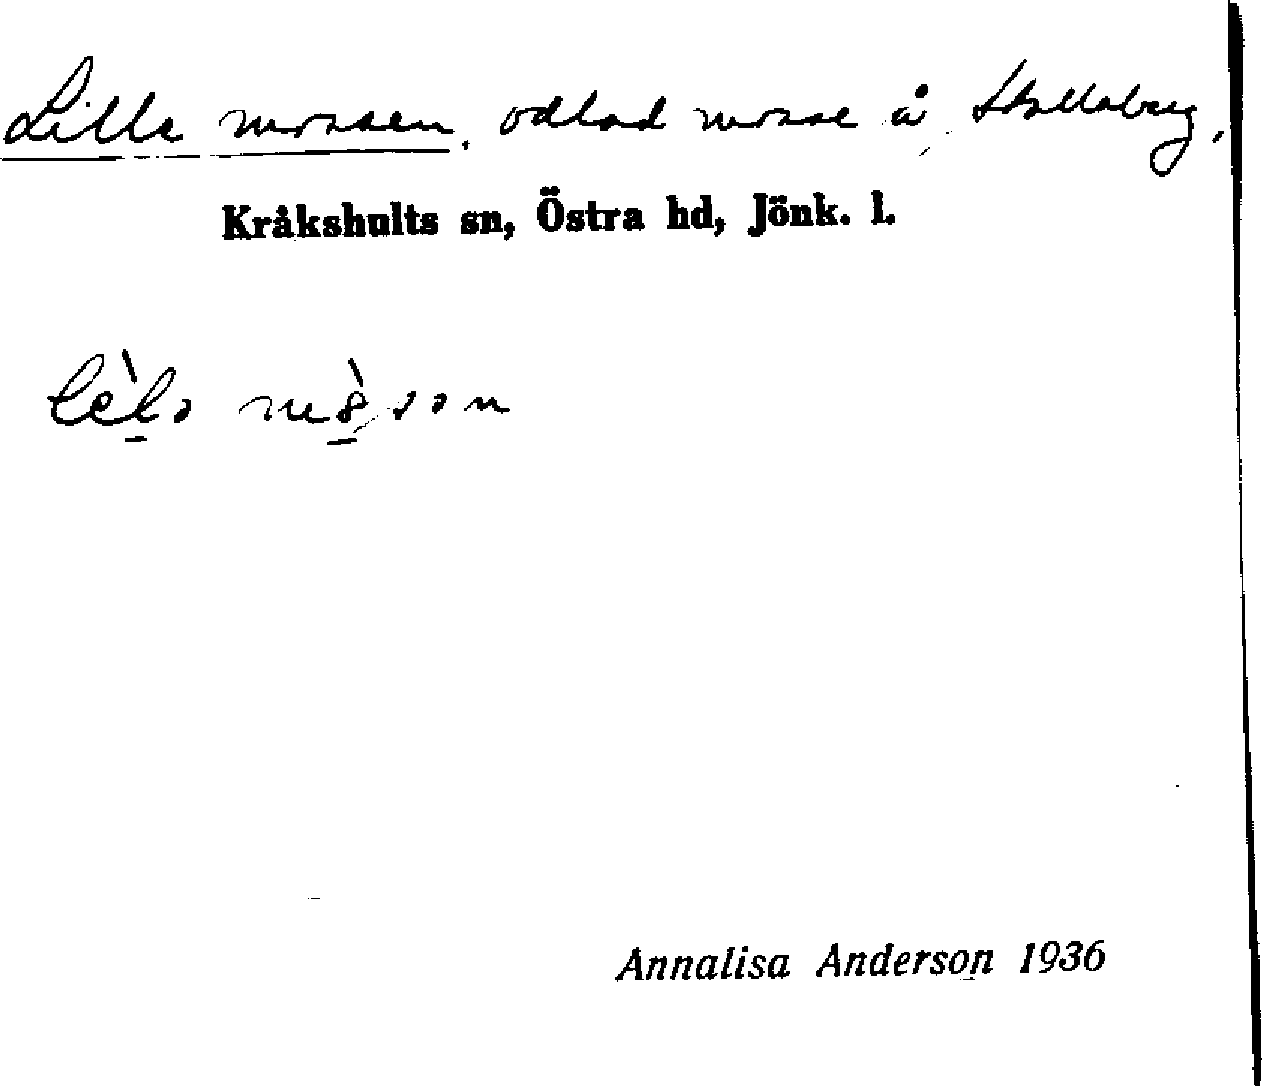 Lilla mossen, odlad mosse å Skallaberg,
Kråkshults sn, Östra hd, Jönk. l.
Annalisa Anderson 1936